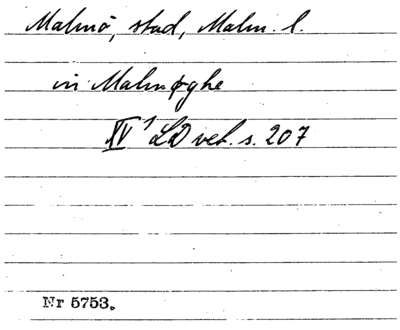 Malmö, stad, Malm. l.
in Malmøghe
XV¹ LD vet. s. 207
Nr 5753.